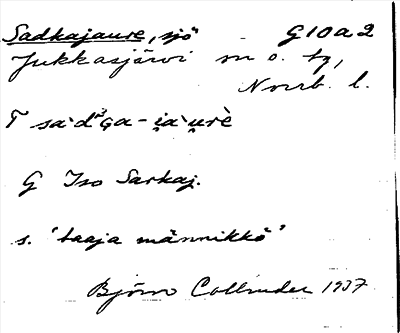 Sadkajaure, sjö G10a2
Jukkasjärvi sn o. tg,
Norrb. l.
T sa·dᵊga-i̯a·u̯rè
G Iso Sarkaj.
s. 'laaja männikkö'
Björn Collinder 1937